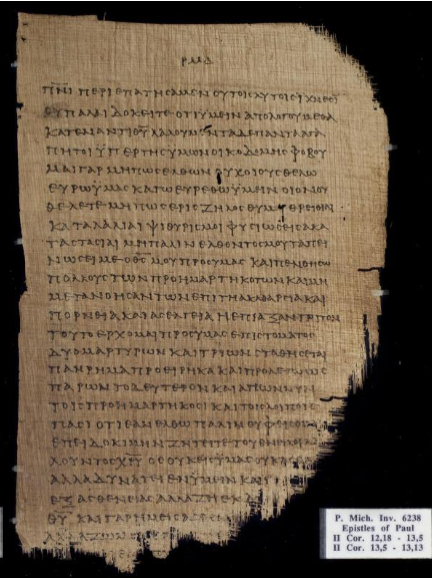 ρμδ
π̅ν̅ι̅ περιεπατησαμεν ου τοις αυτοις ϊχνεσι
ου παλαι δοκειτε οτι υμειν απολογουμεθα
κατεναντι θ̅υ̅ λαλουμεν τα δε παντα αγα
πητοι ϋπερ της υμων οικοδομης φοβου
μαι γαρ μη πως ελθων ουχ οιους θελω
ευρω ϋμας καγω ευρεθω ϋμειν οιον ου
θελετε μη πως ερις ζηλος θυμοι εριθιαι
καταλαλιαι ψιθυρισμοι φυσιωσεις ακα
ταστασιαι μη παλιν ελθοντος μου ταπει
νωσει με ο θ̅ς̅ μου προς υμας και πενθησω
πολλους των προημαρτηκοτων και μη
μετανοησαντων επι τη ακαθαρσια και
πορνεια και ασελγεια η επραξαν τριτον
τουτο ερχομαι προς υμας επι στοματος
δυο μαρτυρων και τριων σταθησεται
παν ρημα προειρηκα και προλεγω ως
παρων το δευτερον και απων νυν
τοις προημαρτηκοσι και τοις λοιποις
πασι οτι εαν ελθω παλιν ου φεισο
επει δοκιμην ζητειτε του εν εμοι λα
λουντος χ̅ρ̅υ̅ ος ουκ εις υμας ουκ
αλλα δυνατει εν υμιν και
εξ ασθενειας αλλα ζη εκ δ
θ̅υ̅ και γαρ ημεις ασθεν
αλλα ζησομεν
P. Mich. Inv. 6238
Epistles of Paul
II Cor. 12,18 - 13,5
II Cor. 13,5 - 13,13